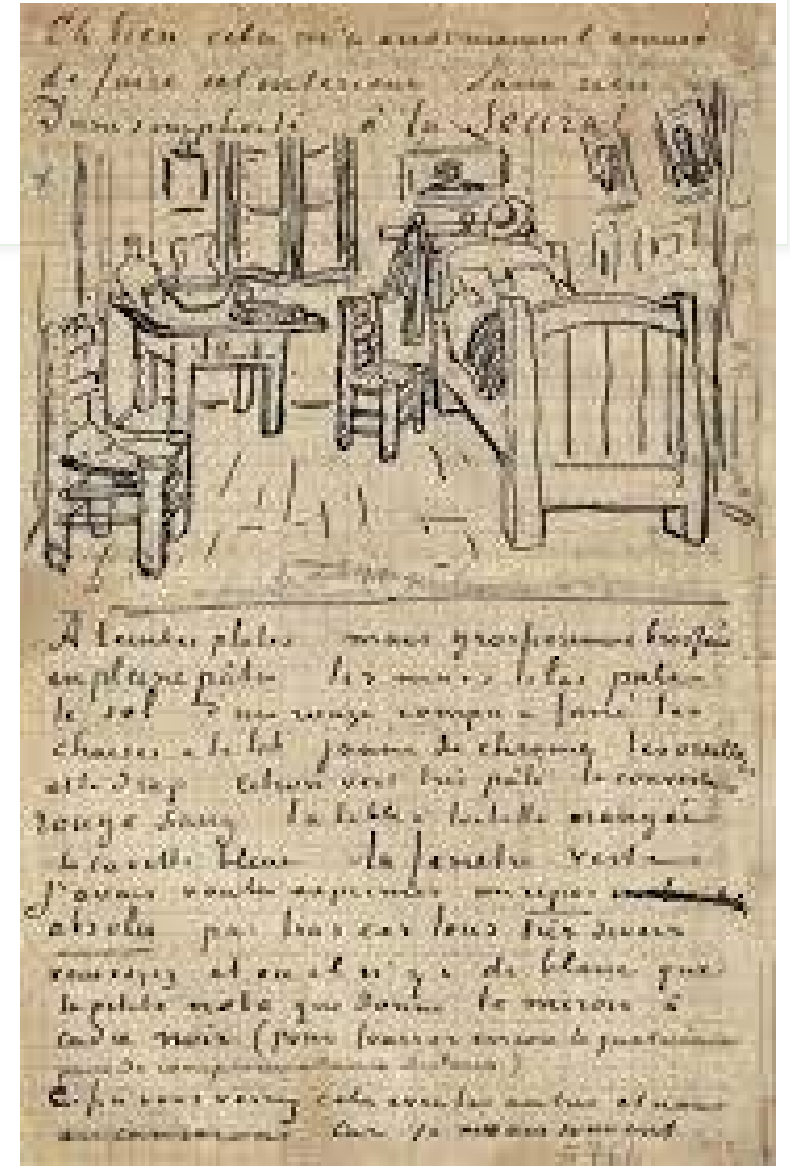 Eh bien cela m'a énormément amusé
de faire cet interieur sans rien
D'une simplicité à la Seurat
A teintes plates mais grossièrement brossées
en pleine pâte les murs lilas pale
le sol d'un rouge rompu & fané les
chaises & le lit jaune de chrome les oreillers
et le drap citron vert très pâle la couverture
rouge sang la table à toilette orangée
la cuvette bleue la fenêtre verte
J'avais voulu exprimer un repos
absolu par tous ces tons très divers
vous voyez et où il n'y a de blanc que
la petite note que donne le miroir à
cadre noir (pour fourrer encore la quatrième
paire de complémentaires dedans)
vous verrez cela avec les autres et nous
en causerons car je ne sais souvent